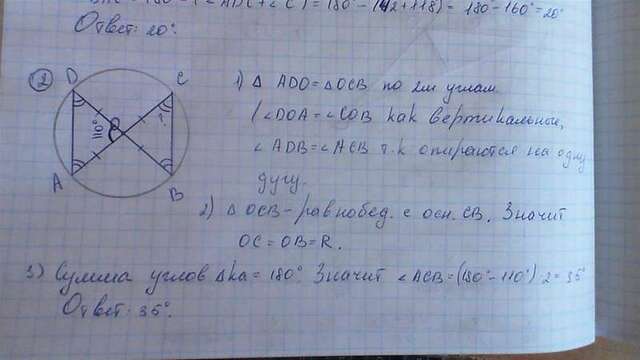 = 180° - (42+118) = 180° - 160° = 20°
Ответ: 20°.
2
D
C
110°
O
?
A
B
1) Δ ADO = ΔOCB по 2м углам
(∠DOA = ∠COB как вертикальные,
∠ADB = ∠ACB т.к опираются на одну
дугу.
2) Δ OCB - равнобед. с осн. CB. Значит
OC = OB = R.
3) Сумма углов Δка = 180°. Значит ∠ACB = (180° - 110°) : 2 = 35°
Ответ: 35°.